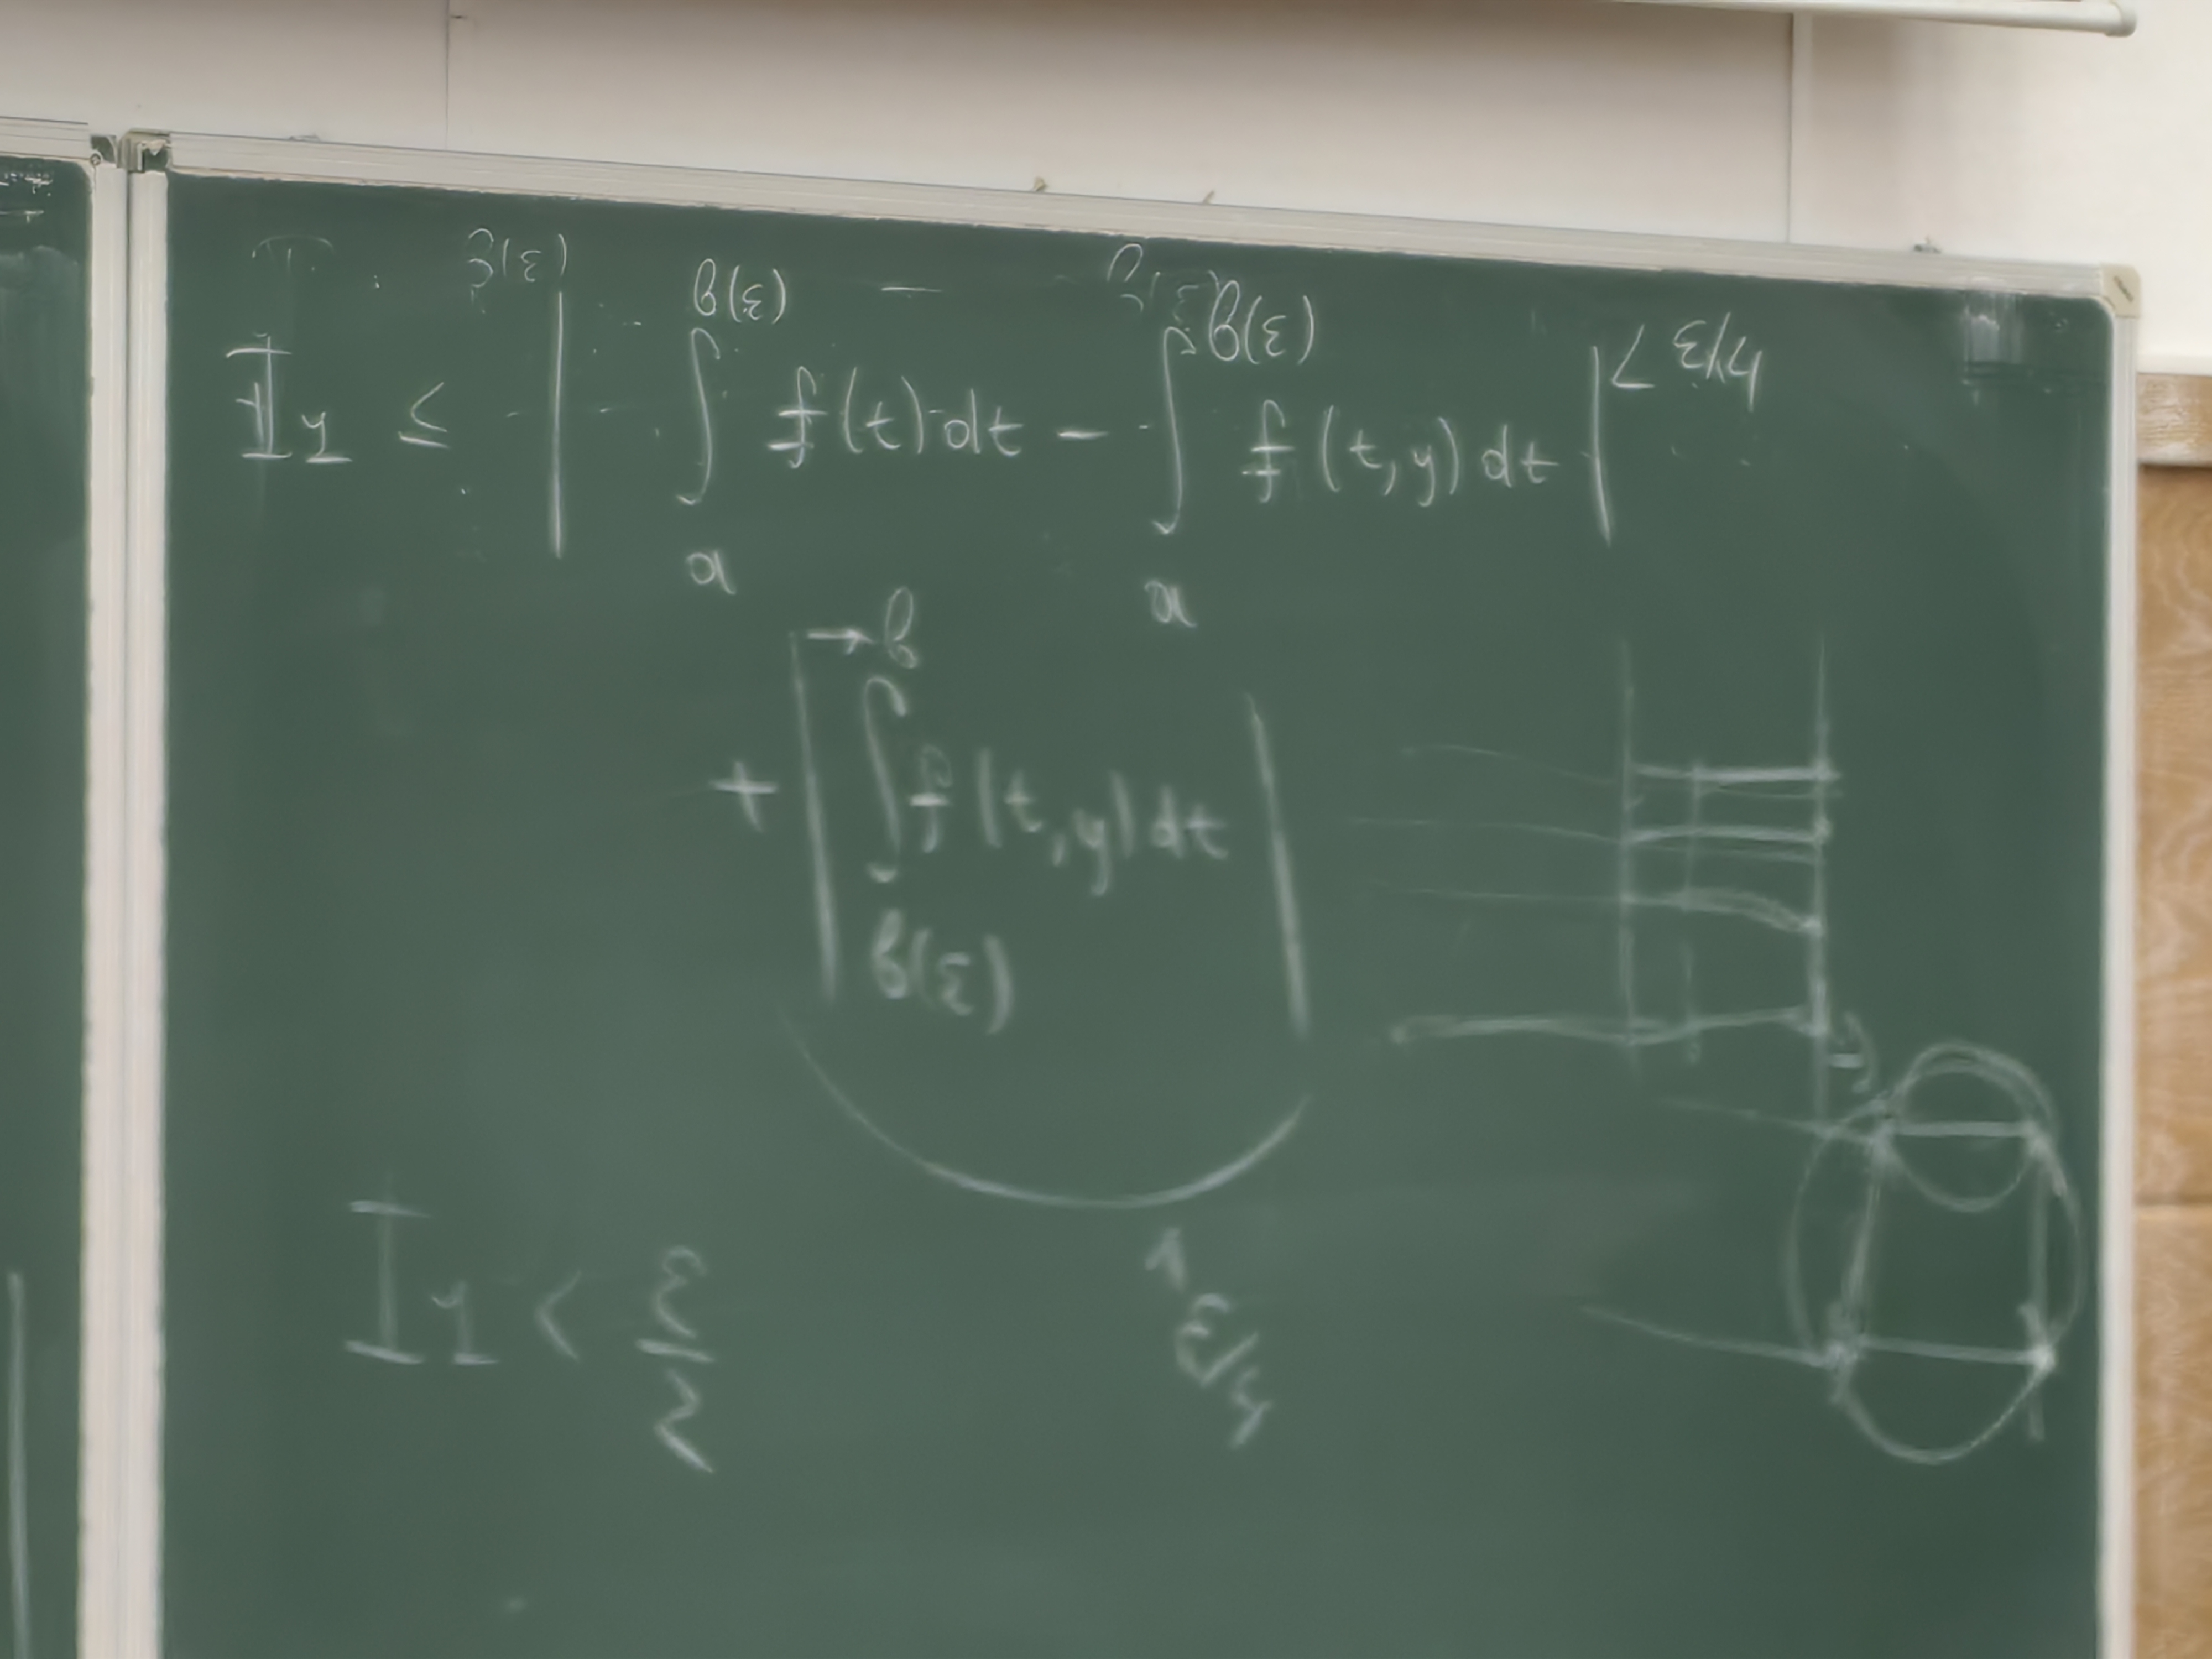 I_y ≤ | ∫_a^{β(ε)} f(t)dt - ∫_a^{β(ε)} f(t,y)dt | < ε/4
+ | ∫_{β(ε)}^{→β} f(t,y)dt |
^ ε/4
I_y < ε/2